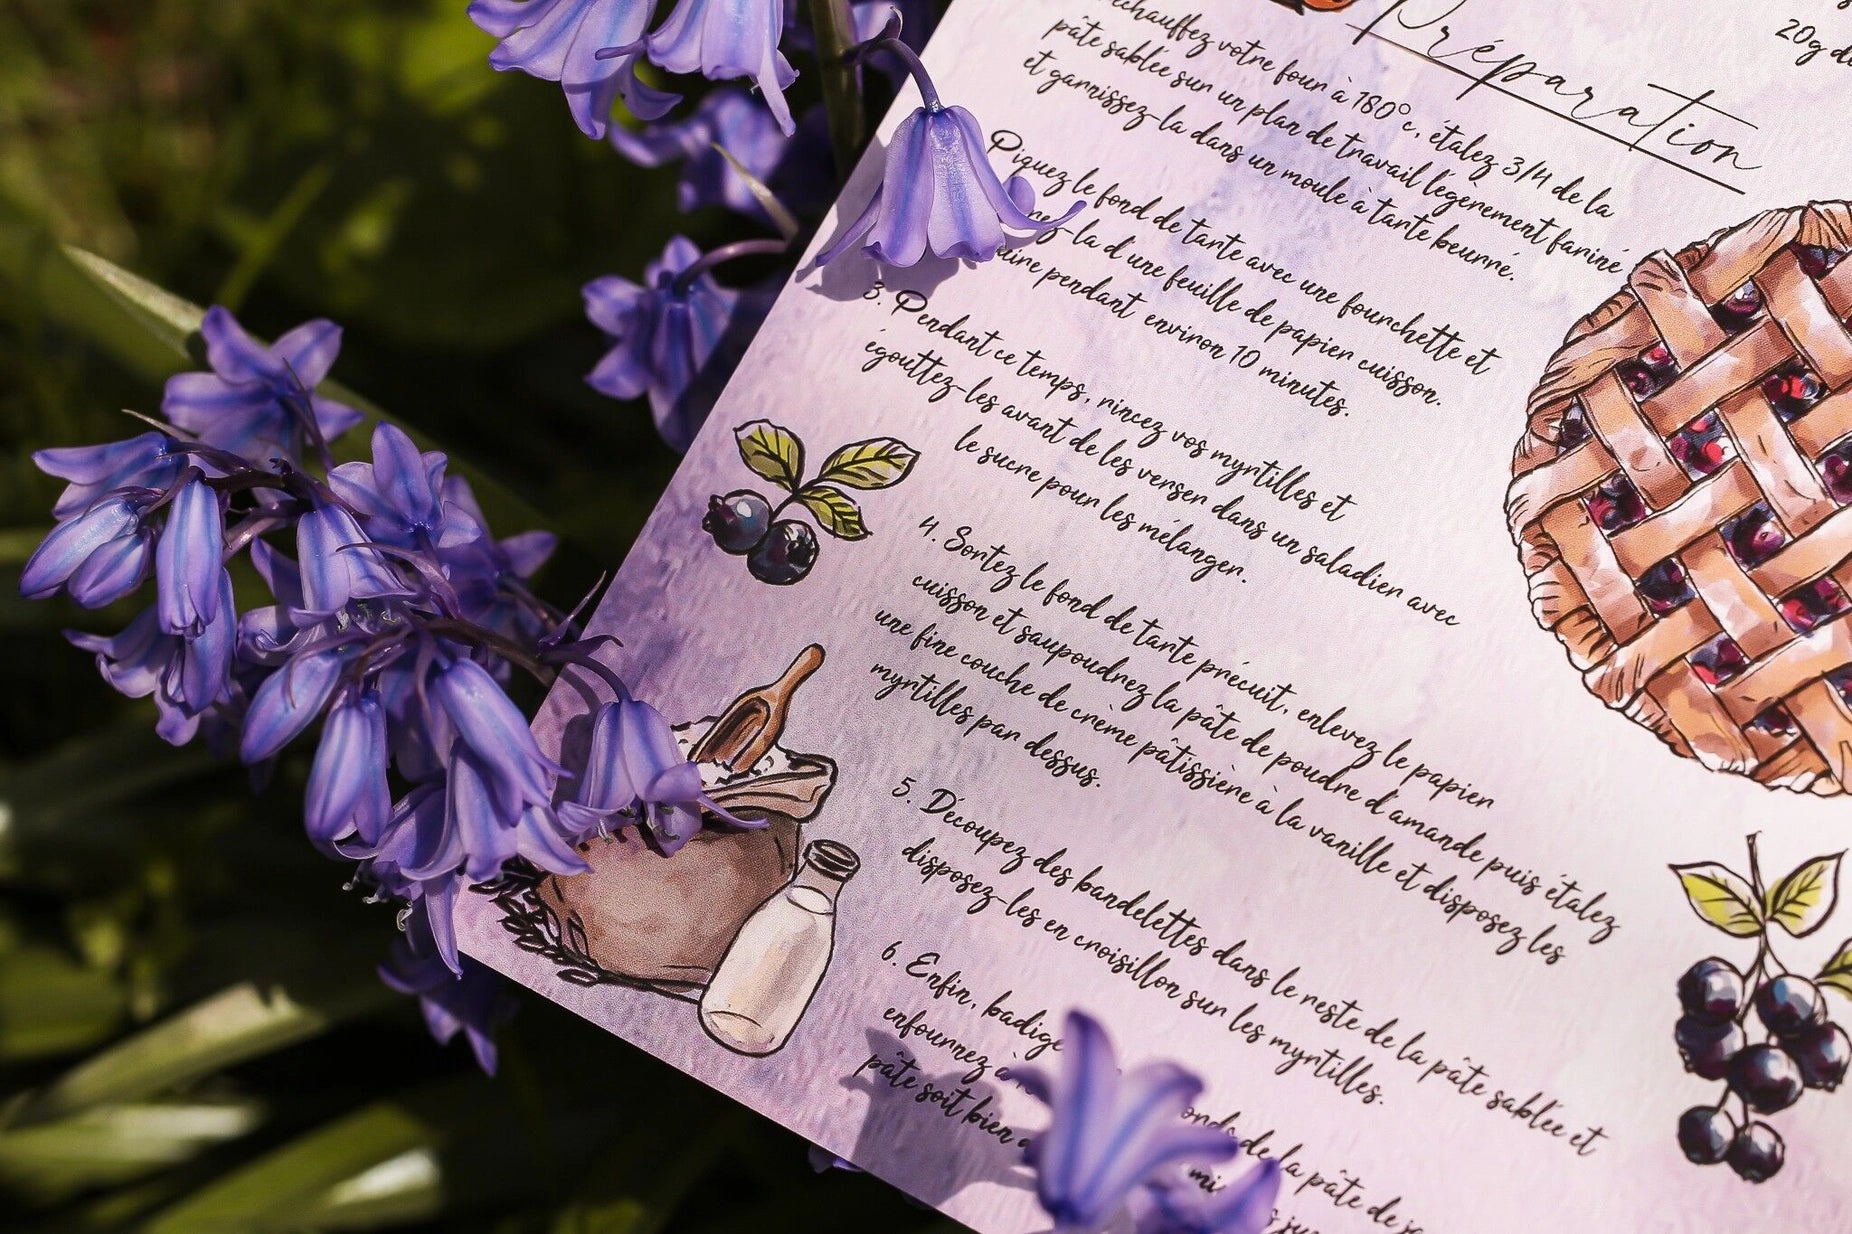 20g
Préparation
votre four à 180°c, étalez 3/4 de la
pâte sablée sur un plan de travail légèrement fariné
et garnissez-la dans un moule à tarte beurré.
Piquez le fond de tarte avec une fourchette et
-la d'une feuille de papier cuisson.
pendant environ 10 minutes.
3. Pendant ce temps, rincez vos myrtilles et
égouttez-les avant de les verser dans un saladier avec
le sucre pour les mélanger.
4. Sortez le fond de tarte précuit, enlevez le papier
cuisson et saupoudrez la pâte de poudre d'amande puis étalez
une fine couche de crème pâtissière à la vanille et disposez les
myrtilles par dessus.
5. Découpez des bandelettes dans le reste de la pâte sablée et
disposez-les en croisillon sur les myrtilles.
6. Enfin, badige
enfournez à
de la pâte de
pâte soit bien